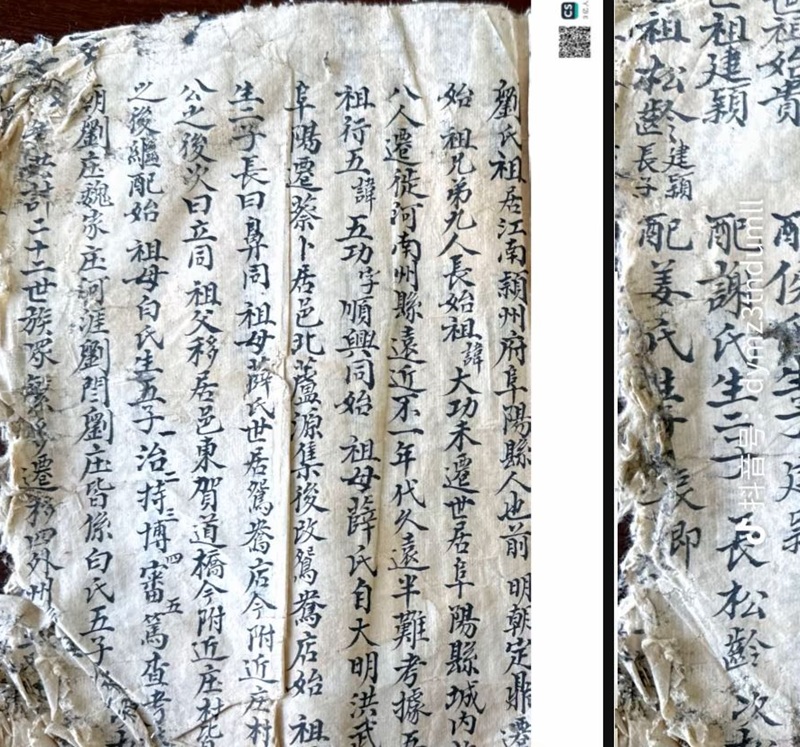 劉氏祖居江南潁州府阜陽縣人也前 明朝定鼎遷
始 祖兄弟九人長始祖諱大功未遷世居阜陽縣城内
八人遷徙河南州縣遠近不一年代久遠半難考據五
祖行五諱五功字順興同始 祖母薛氏自大明洪武
阜陽遷蔡卜居邑北蘆源集後改鴛鴦店始 祖
生二子長曰鼻同 祖母薛氏世居鴛鴦店今附近庄村
公之後次曰立同 祖父移居邑東賀道橋今附近庄村皆
之後繼配始 祖母白氏生五子一治二持三博四審五篤查考
胡劉庄魏家庄河涯劉閆劉庄皆係白氏五子
共計二十二世族眾繁多遷移四外州
世祖始貴 配侯氏生子建穎
祖建穎 配謝氏生二子長松齡次
祖松齡建穎長子 配姜氏
即
抖音号:dymz3thdumil
CS